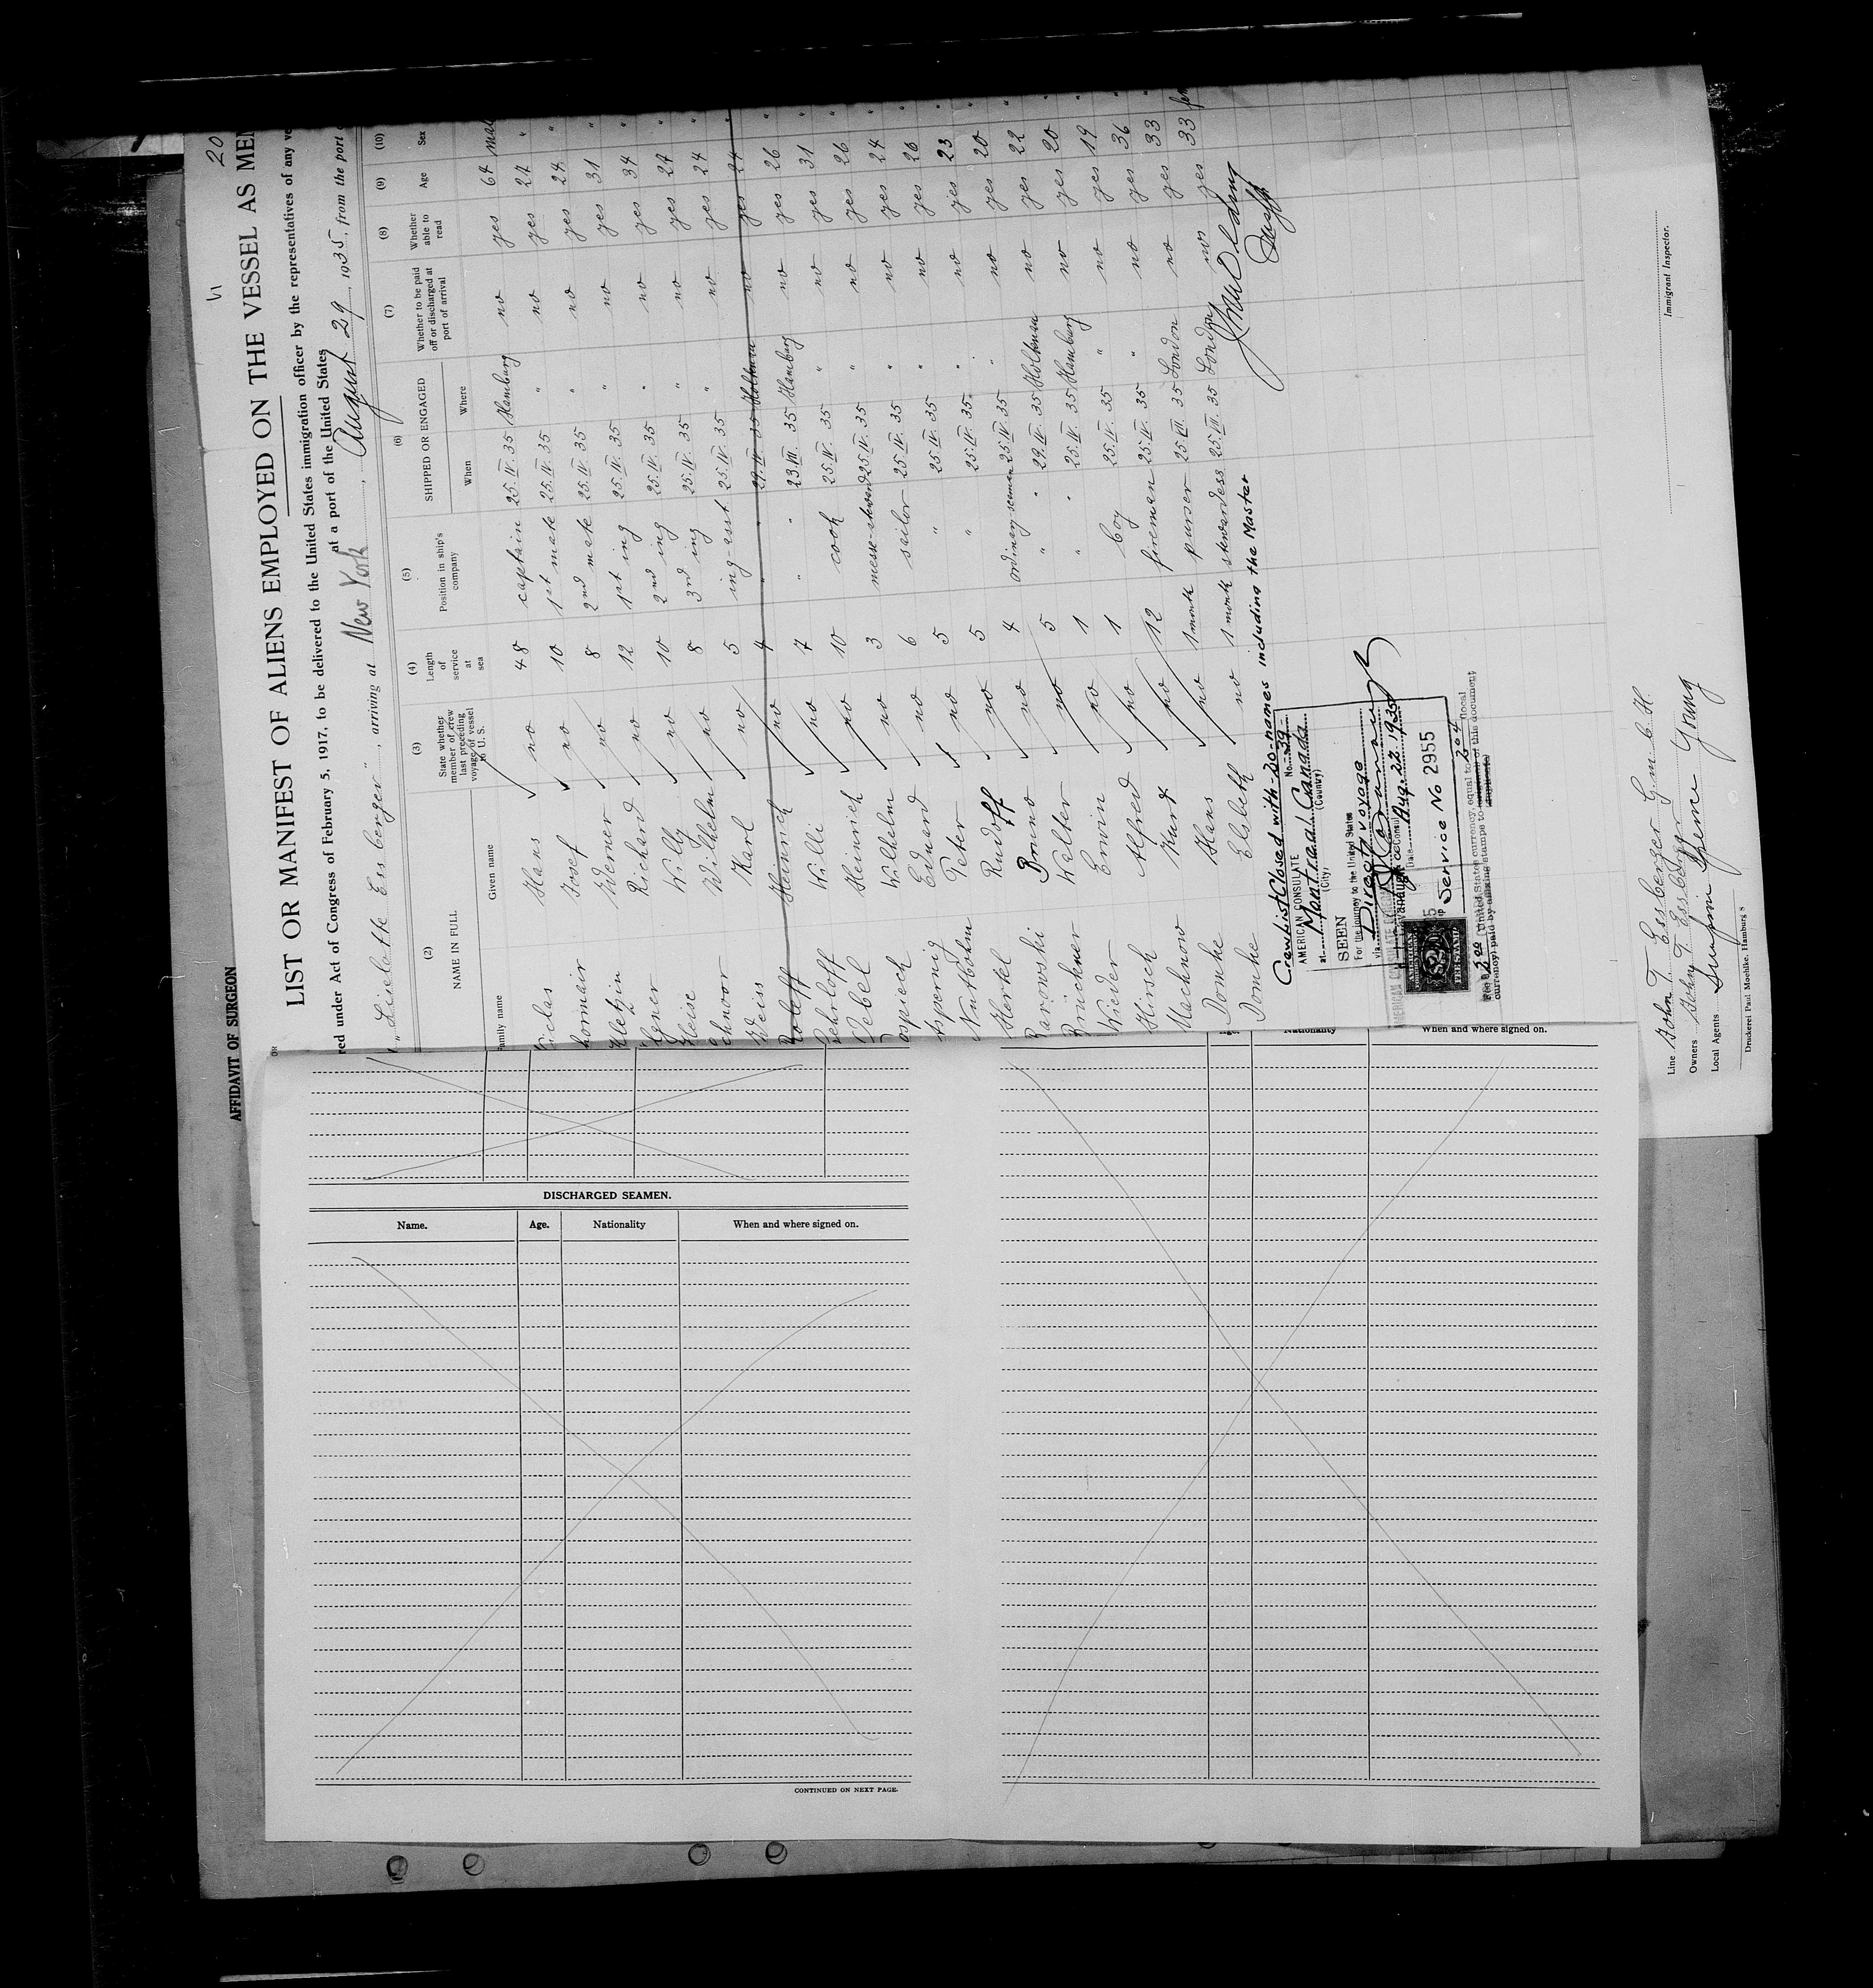 AFFIDAVIT OF SURGEON
20
LIST OR MANIFEST OF ALIENS EMPLOYED ON THE VESSEL AS MEM
red under Act of Congress of February 5, 1917, to be delivered to the United States immigration officer by the representatives of any ve
at a port of the United States
"Liselotte Essberger", arriving at New York, August 29, 1935, from the port
(2) (3) (4) (5) (6) (7) (8) (9) (10)
NAME IN FULL
Family name Given name
State whether member of crew last preceding voyage of vessel to U. S.
Length of service at sea
Position in ship's company
SHIPPED OR ENGAGED
When Where
Whether to be paid off or discharged at port of arrival
Whether able to read
Age
Sex
Hans no 48 captain 25. IV. 35 Hamburg no yes 64 mal
Josef no 10 1st mate 25. IV. 35 " no yes 27 "
Werner no 8 2nd mate 25. IV. 35 " no yes 24 "
Richard no 12 1st ing 25. IV. 35 " no yes 31 "
Willy no 10 2nd ing 25. IV. 35 " no yes 34 "
Heise Wilhelm no 8 3rd ing 25. IV. 35 " no yes 27 "
Karl no 5 ing-asst 25. IV. 35 " no yes 24 "
Weiss Heinrich no 4 " 29. IV. 35 Holtenau no yes 24 "
Roloff Willi no 7 " 23. VII. 35 Hamburg no yes 26 "
Heinrich no 10 cook 25. IV. 35 " no yes 31 "
Wilhelm no 3 messe-steward 25. IV. 35 " no yes 26 "
Eduard no 6 sailor 25. IV. 35 " no yes 24 "
Peter no 5 " 25. IV. 35 " no yes 26 "
Nutbohm Rudolf no 5 " 25. IV. 35 " no yes 23 "
Hertel Bruno no 4 ordinary-seaman 25. IV. 35 " no yes 20 "
Walter no 5 " 29. IV. 35 Holtenau no yes 22 "
Brückner Erwin no 1 " 25. IV. 35 Hamburg no yes 20 "
Wieder Alfred no 1 boy 25. IV. 35 " no yes 19 "
Hirsch Kurt no 12 fireman 25. IV. 35 " no yes 36 "
Machnow Hans no 1 month purser 25. VII. 35 London no yes 33 "
Domke Elsbeth no 1 month stewardess 25. VII. 35 London no yes 33 fem
Domke
Crew list closed with -20- names including the Master
AMERICAN CONSULATE No. 39
at Montreal Canada
(City) (Country)
SEEN
For the journey to the United States
via Direct voyage
Date Aug. 22 1935
Service No 2955
Line John T. Essberger G.m.b.H.
Owners John T. Essberger
Local Agents
Druckerei Paul Moehlke, Hamburg 8
Immigrant Inspector.
Nationality When and where signed on.
DISCHARGED SEAMEN.
Name. Age. Nationality When and where signed on.
CONTINUED ON NEXT PAGE.